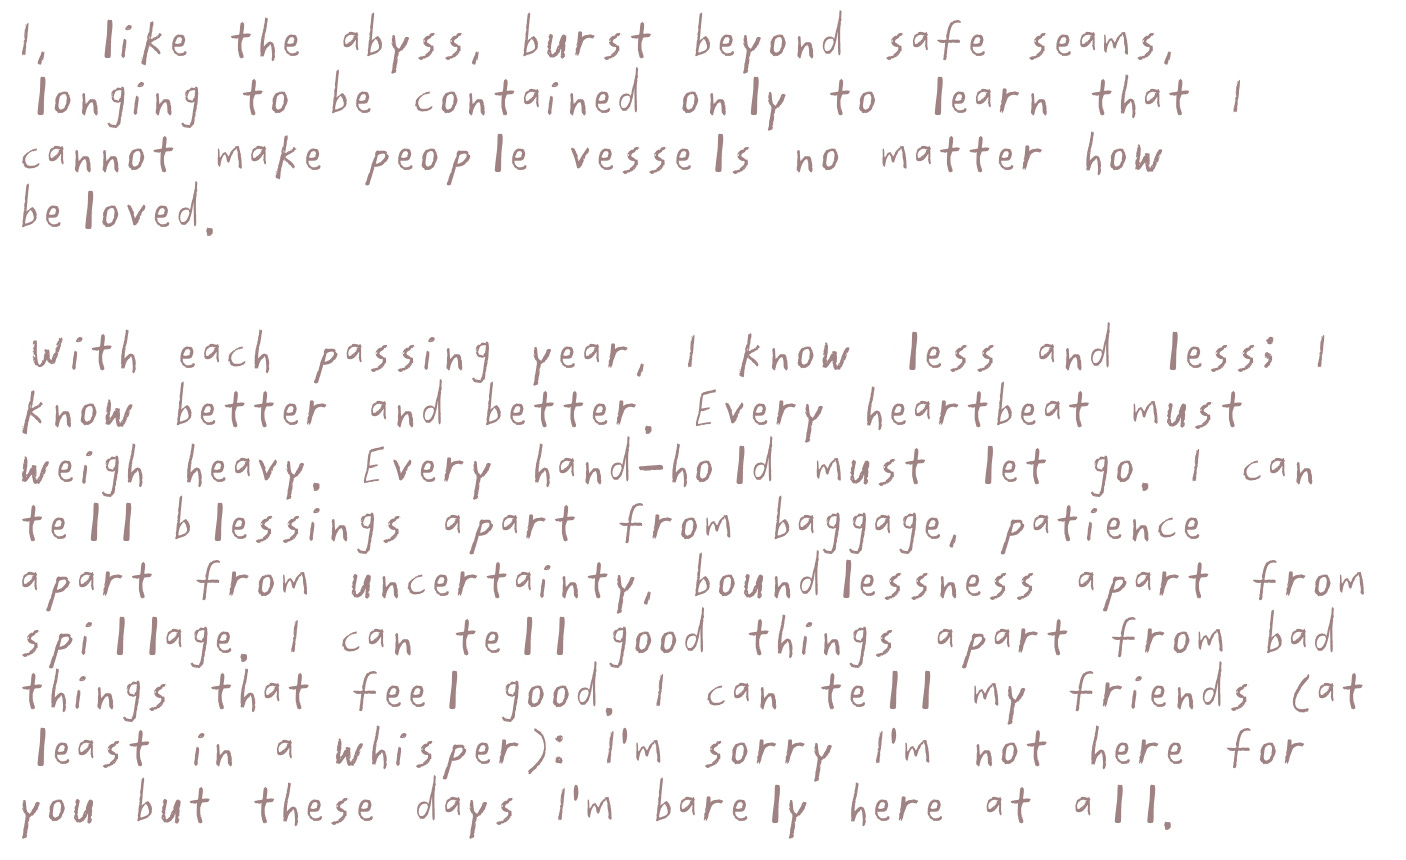 I, like the abyss, burst beyond safe seams,
longing to be contained only to learn that I
cannot make people vessels no matter how
beloved.

With each passing year, I know less and less; I
know better and better. Every heartbeat must
weigh heavy. Every hand-hold must let go. I can
tell blessings apart from baggage, patience
apart from uncertainty, boundlessness apart from
spillage. I can tell good things apart from bad
things that feel good. I can tell my friends (at
least in a whisper): I'm sorry I'm not here for
you but these days I'm barely here at all.